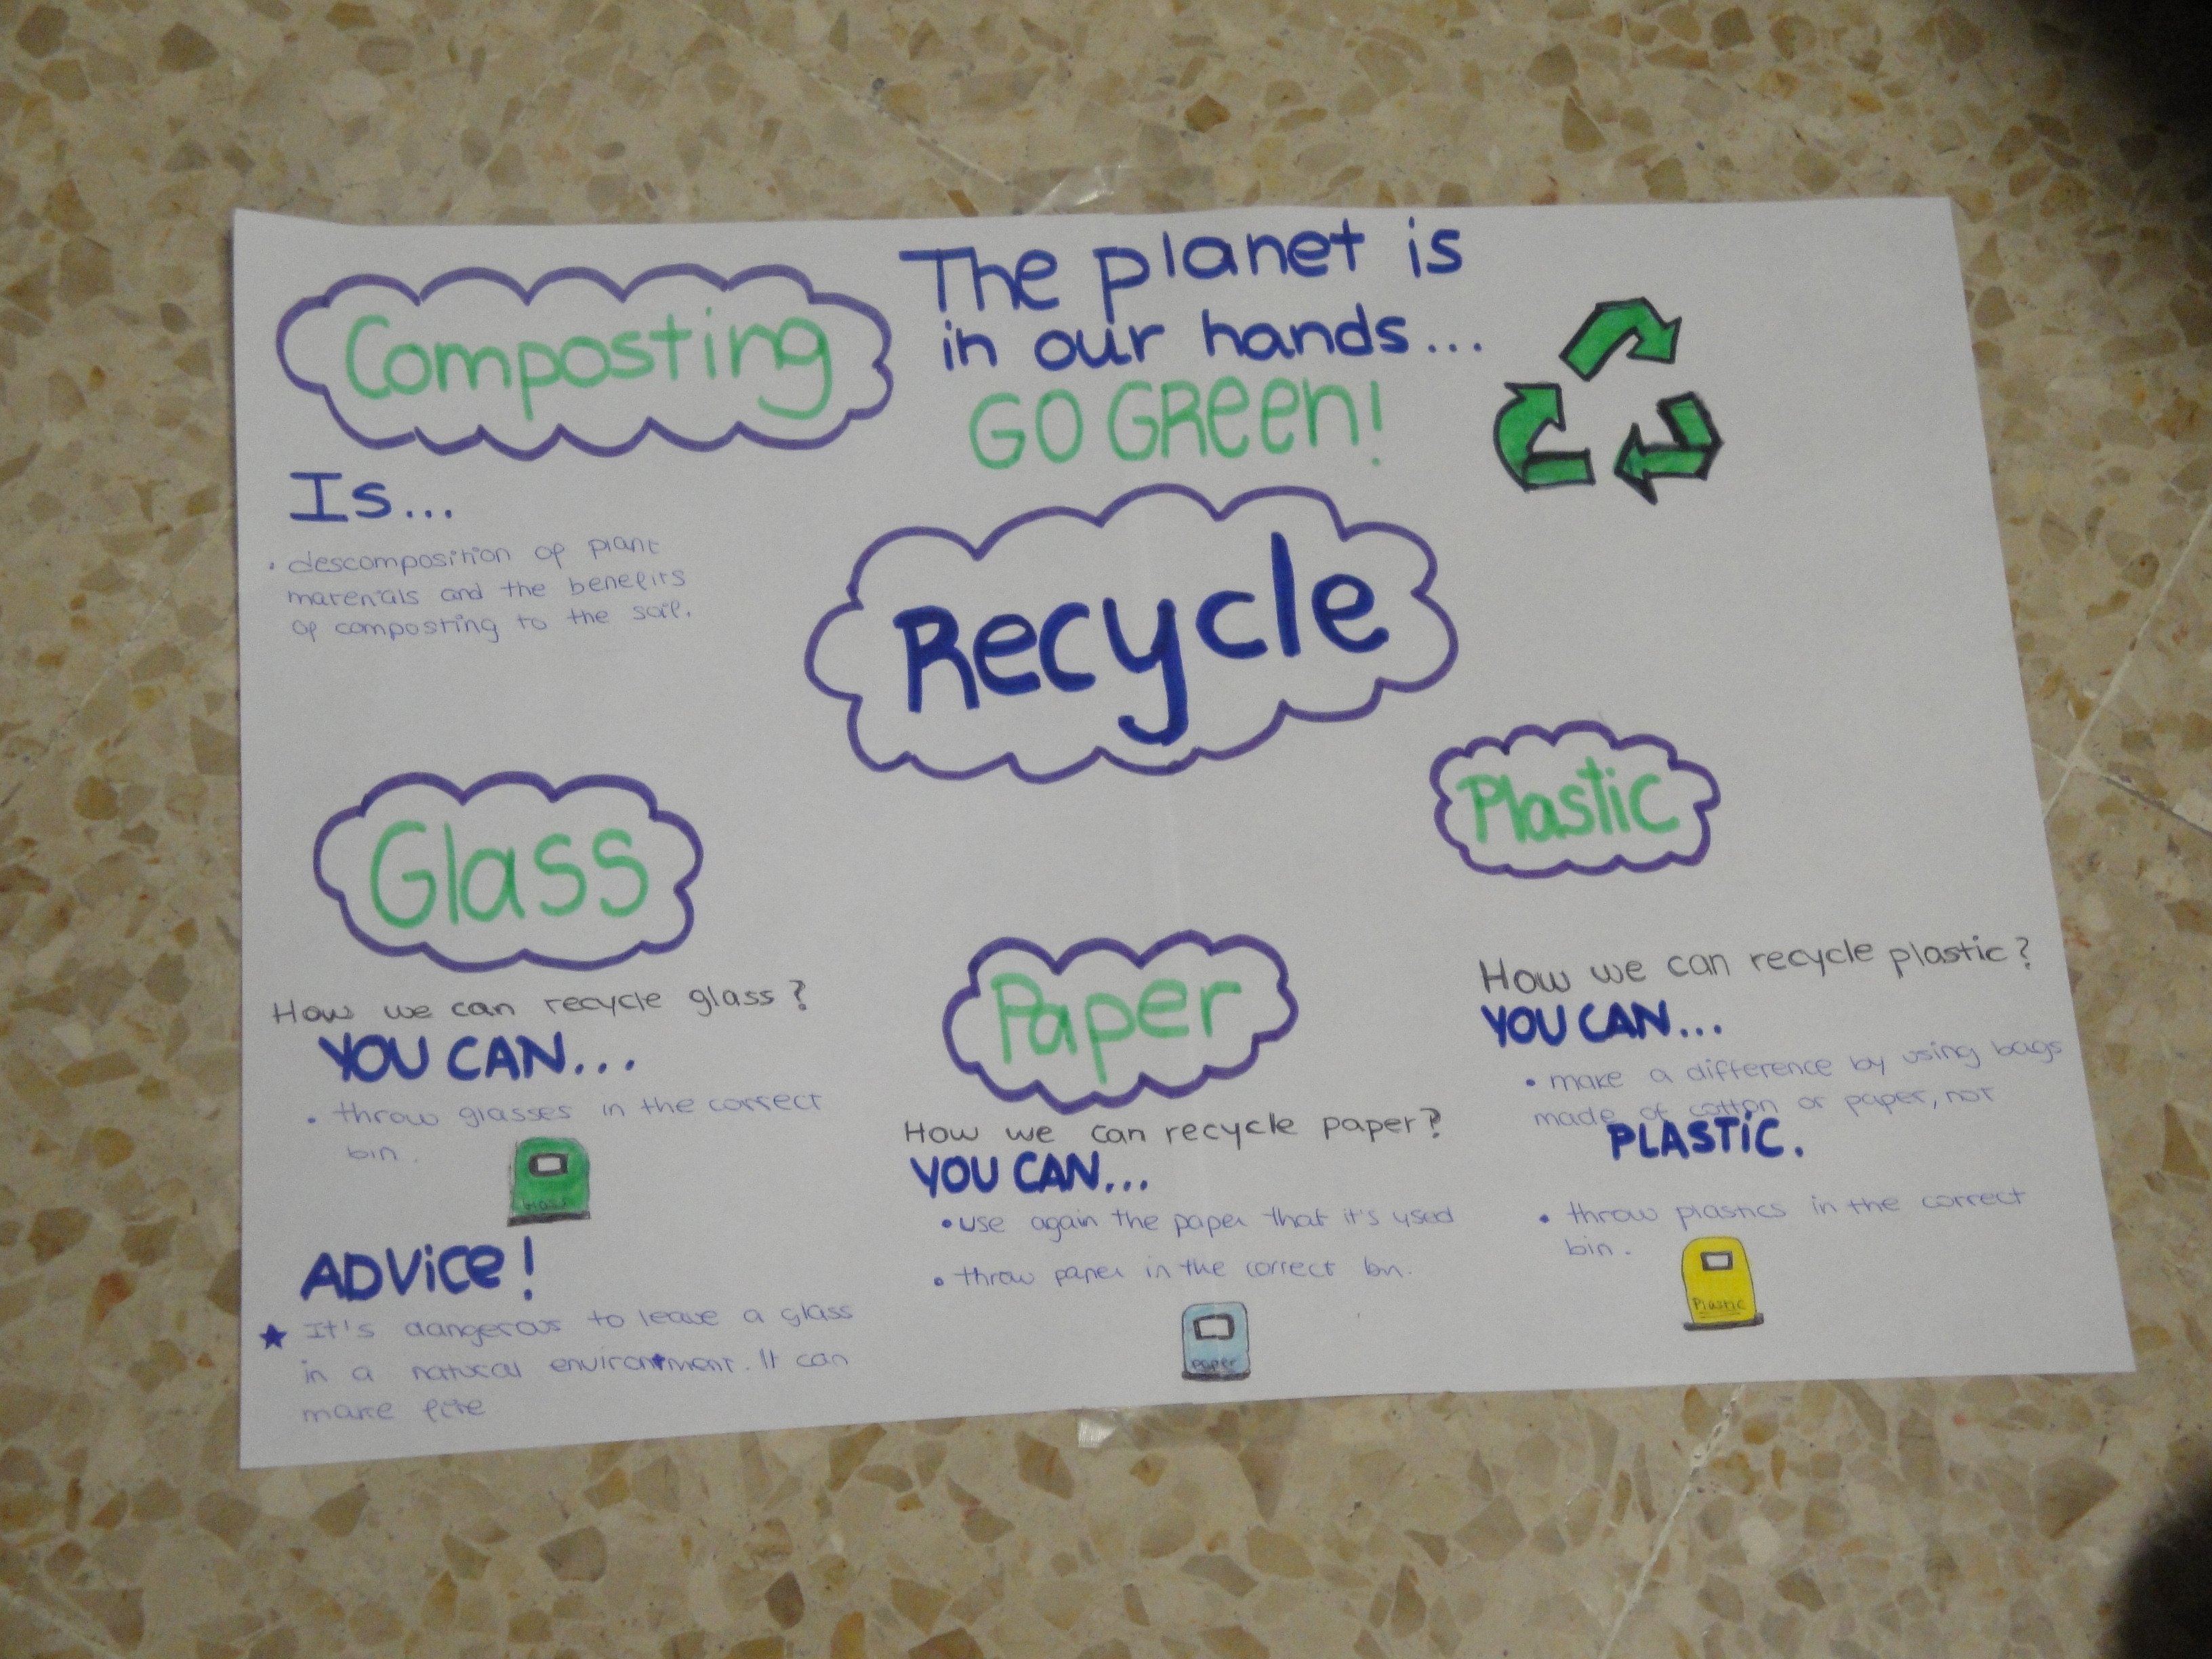 The planet is
in our hands...
GO GReen!
Composting
Is...
• descomposition of plant
materials and the benefits
of composting to the soil.
Recycle
Glass
How we can recycle glass?
YOU CAN...
• throw glasses in the correct
bin.
Glass
ADVice!
★ It's dangerous to leave a glass
in a natural environtment. It can
make fire
Paper
How we can recycle paper?
YOU CAN...
• use again the paper that it's used
• throw paper in the correct bin.
paper
Plastic
How we can recycle plastic?
YOU CAN...
• make a difference by using bags
made of cotton or paper, not
PLASTiC.
• throw plastics in the correct
bin.
Plastic